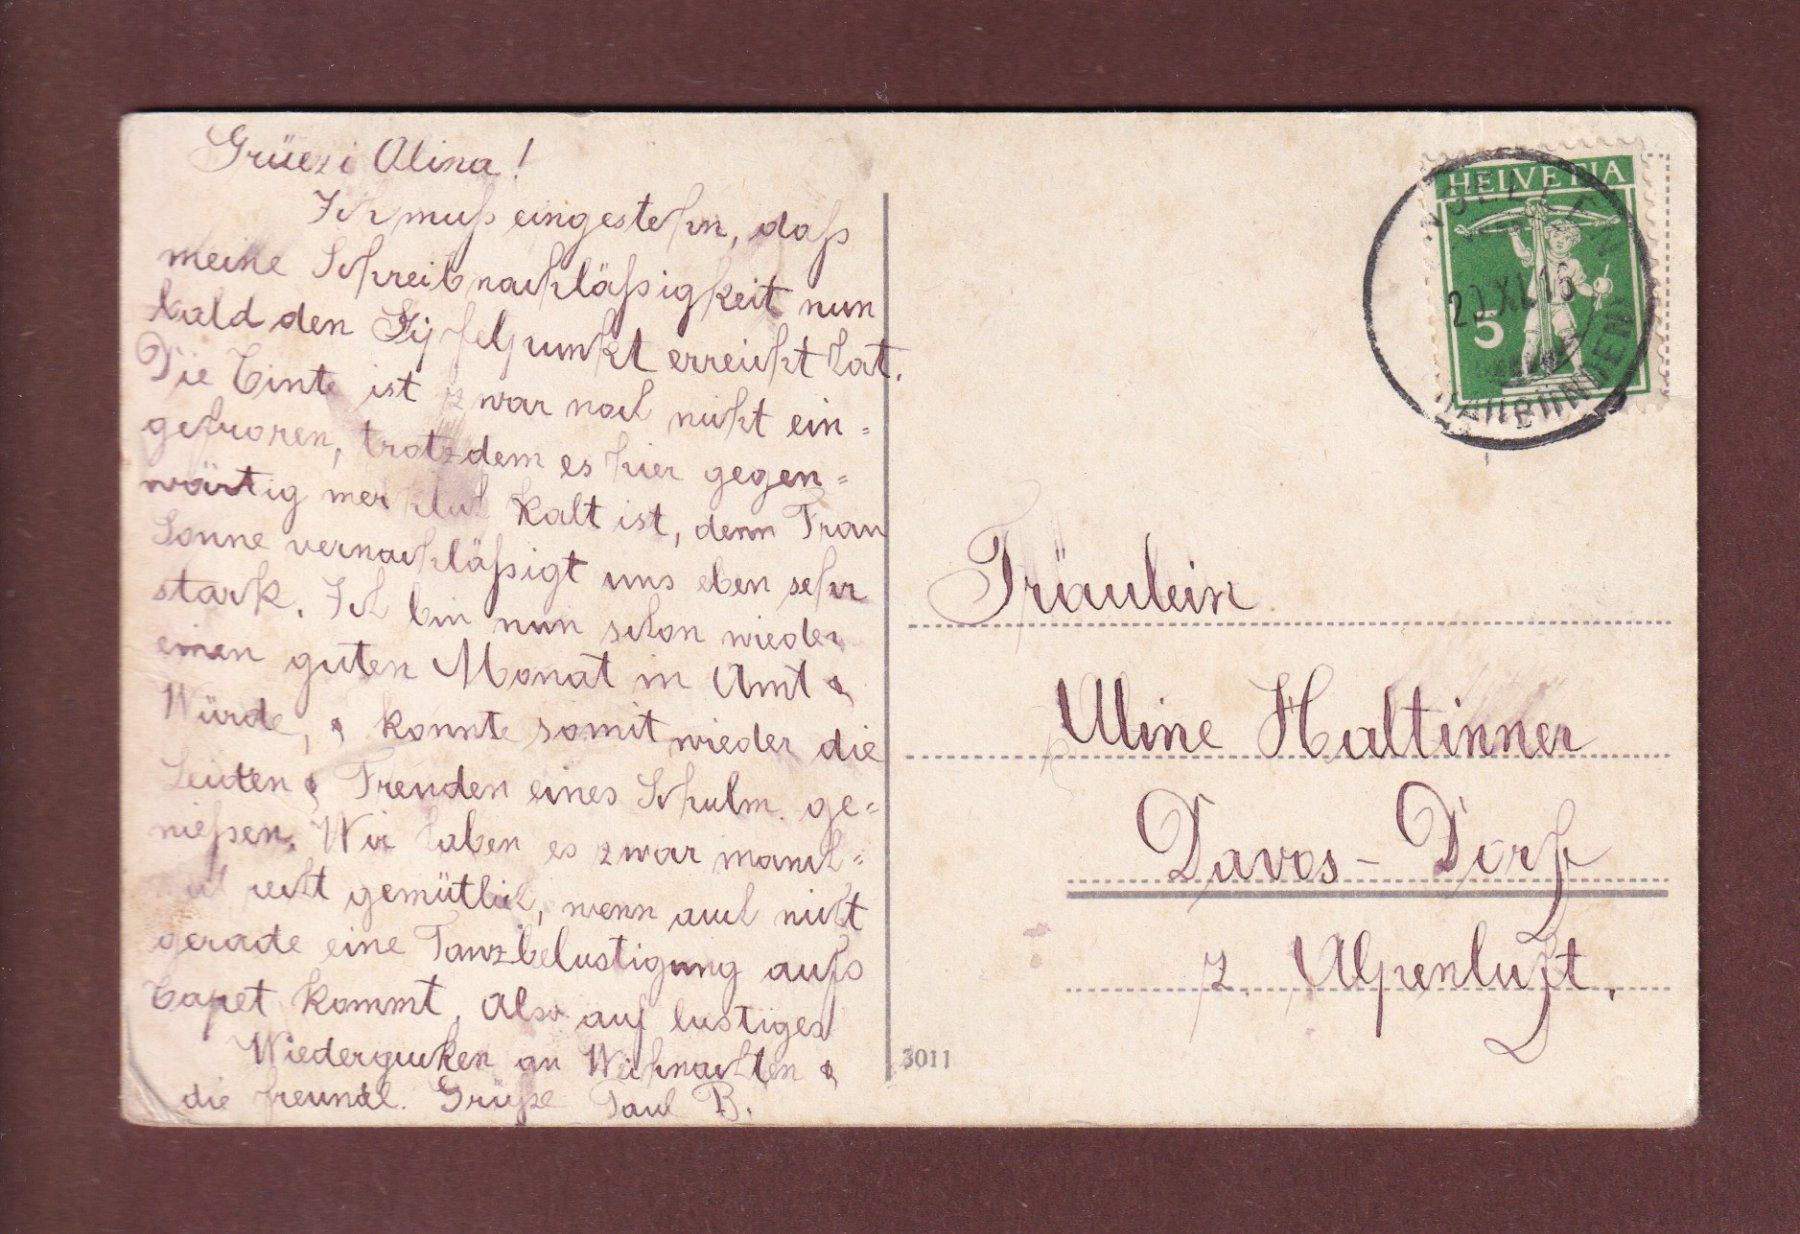 Grüezi Alina!
Ich muß eingestehn, daß
meine Schreibnachläßigkeit nun
bald den Gipfelpunkt erreicht hat.
Die Tinte ist zwar noch nicht ein=
gefroren, trotzdem es hier gegen=
wärtig merklich kalt ist, denn Frau
Sonne vernachläßigt uns eben sehr
stark. Ich bin nun schon wieder
einen guten Monat in Amt &
Würde, & konnte somit wieder die
Leiden & Freuden eines Schulm. ge=
nießen. Wir haben es zwar manch=
mal recht gemütlich, wenn auch nicht
gerade eine Tanzbelustigung aufs
Tapet kommt. Also auf lustiges
Wiedergucken an Weihnachten &
die freundl. Grüße Paul B.
HELVETIA
20.XI.
5
GRAUBÜNDEN
Fräulein
Aline Haltinner
Davos-Dorf
z. Alpenluft.
3011